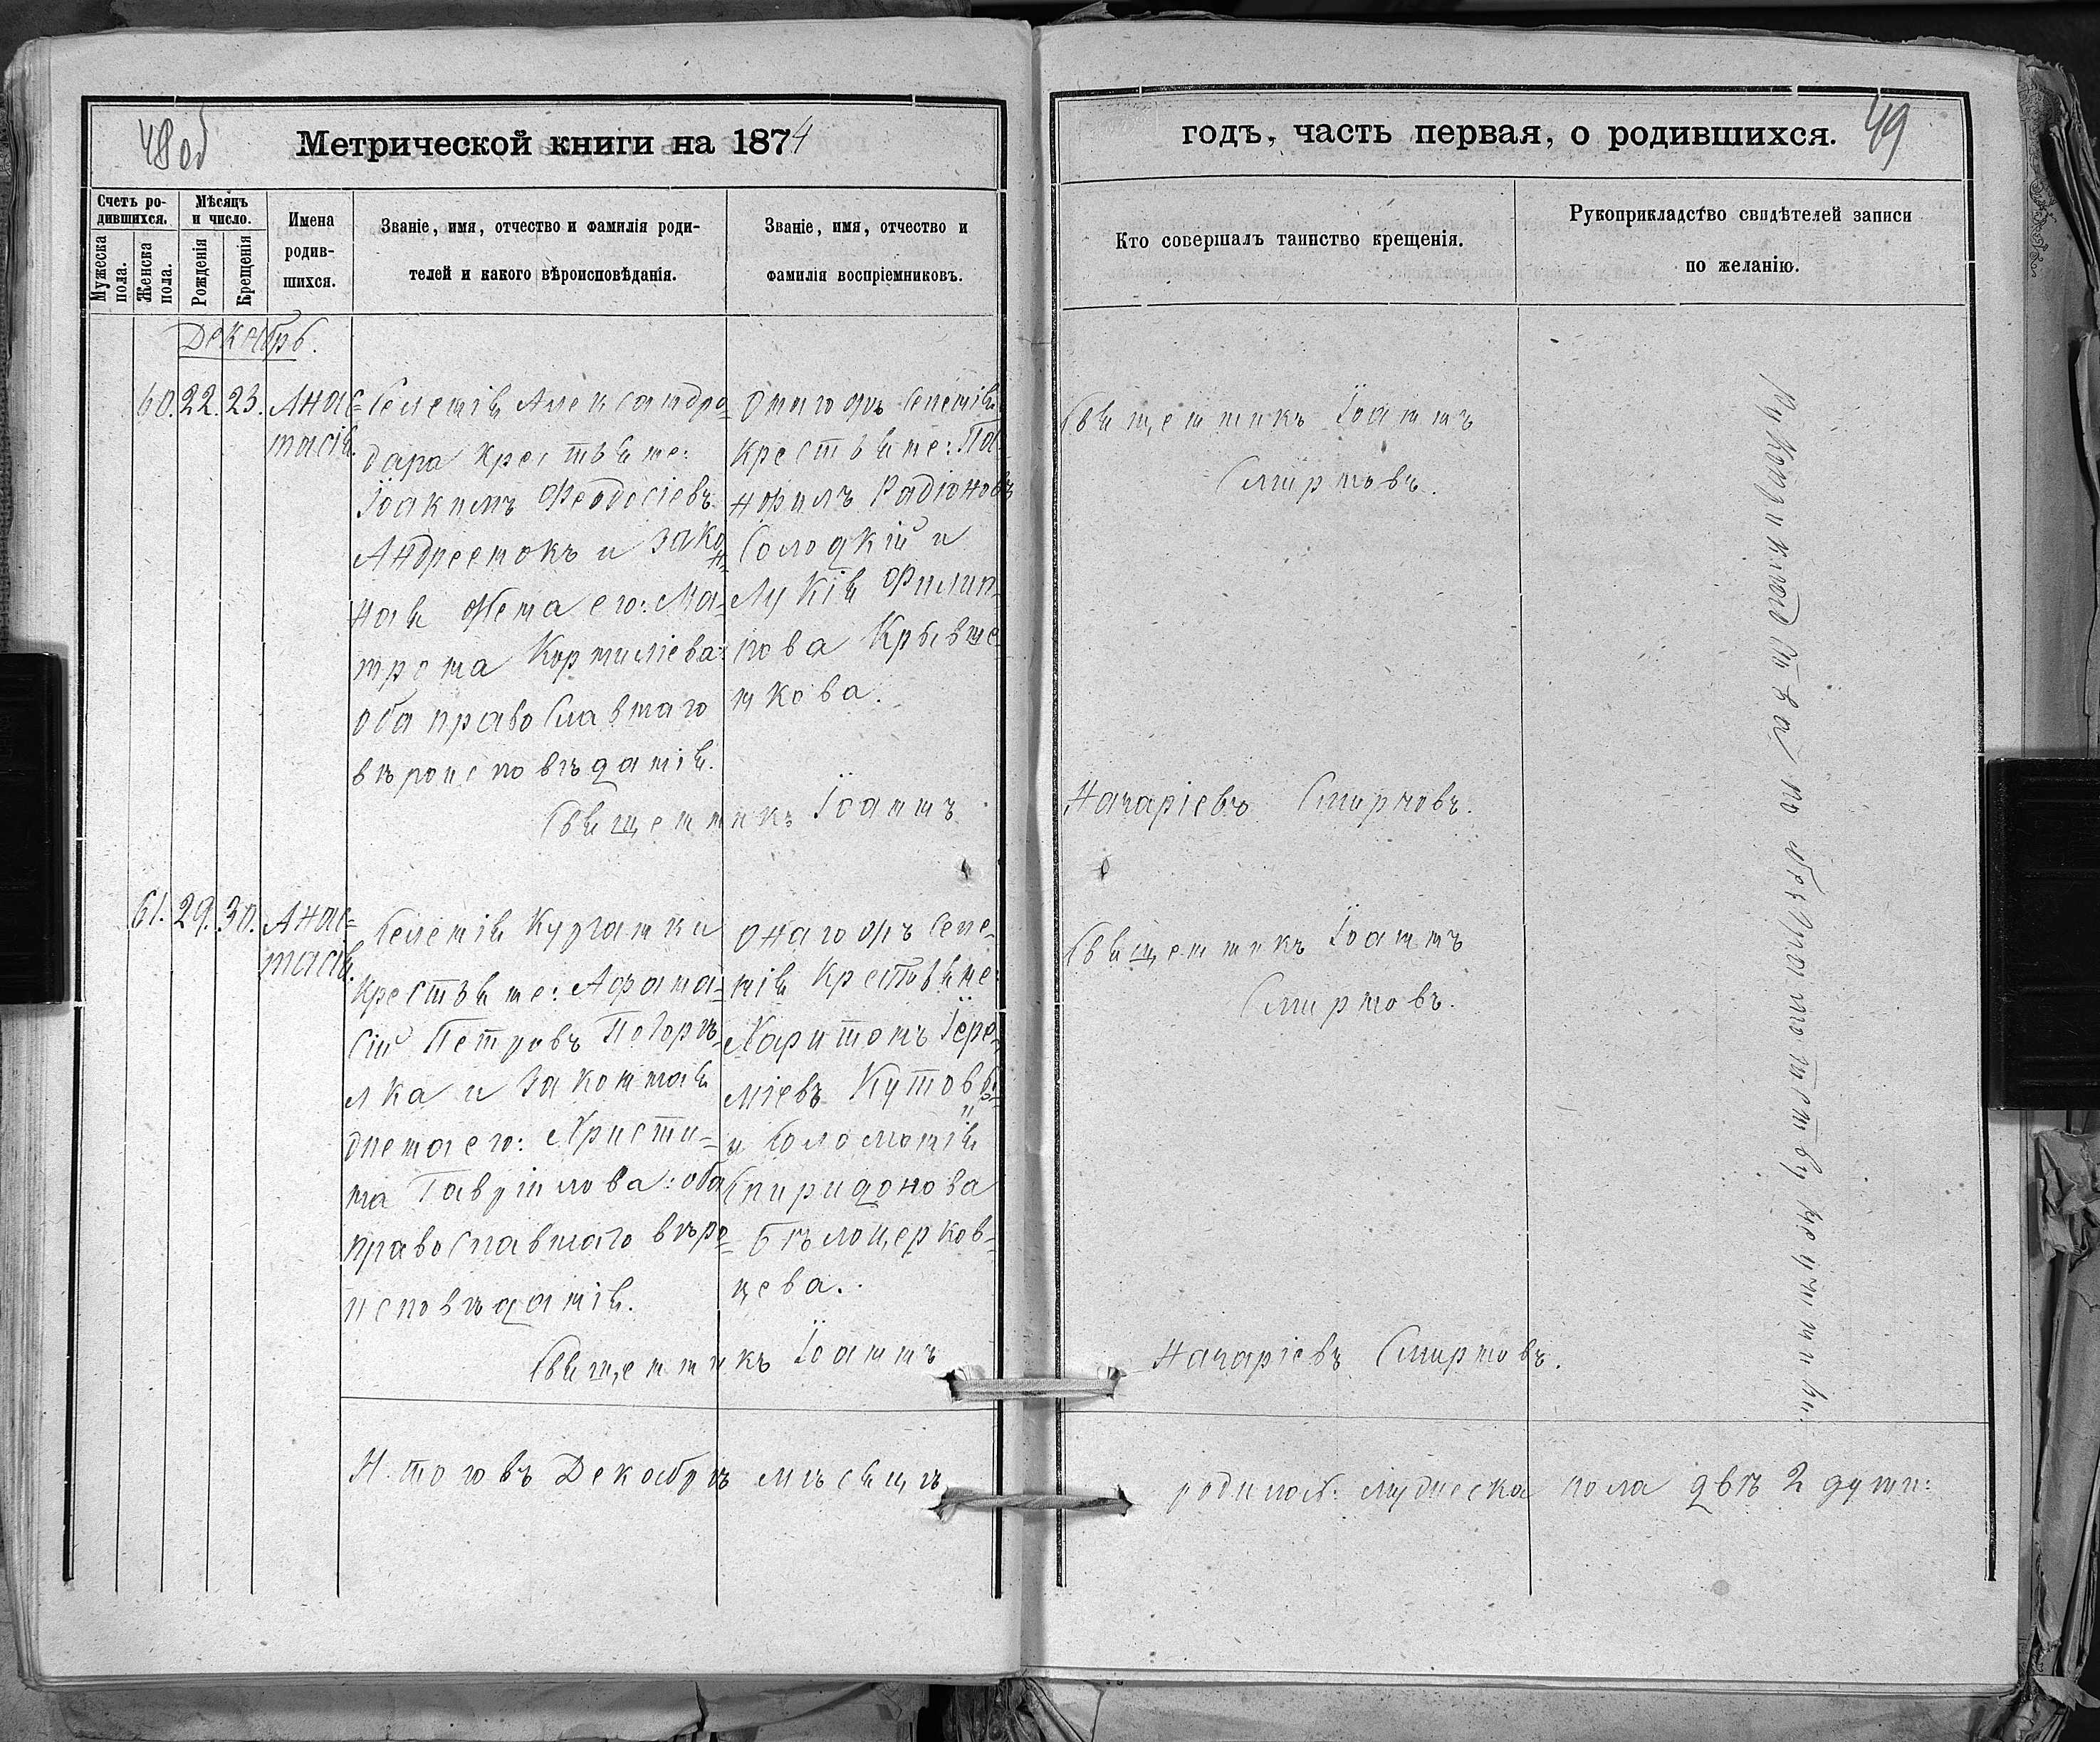 48 об
Метрической книги на 1874
Счетъ ро-
дившихся.
Мѣсяцъ
и число.
Мужеска
пола.
Женска
пола.
Рожденія
Крещенія
Имена
родив-
шихся.
Званіе, имя, отчество и фамилія роди-
телей и какого вѣроисповѣданія.
Званіе, имя, отчество и
фамилія воспріемниковъ.
Декабрь.
60. 22. 23. Анас-
тасія.
Селенія Александро
дара крестьяне:
Іоакимъ Феодосіевъ
Андреенокъ и закон-
ная жена его: Ма-
трона Корниліева:
оба православнаго
вѣроисповѣданія.
Онагожъ Селенія
крестьяне: Па-
нфилъ Радіоновъ
Солодкій и
Лукія Филип-
пова Крывше-
нкова.
Священникъ Іоаннъ
61. 29. 30. Анас-
тасія.
Селенія Курганки
крестьяне: Афана-
сій Петровъ Погорѣ-
лка и законная
жена его: Христи-
на Гавріилова: оба
православнаго вѣро-
исповѣданія.
онагожъ Селе-
нія Крестьяне:
Харитонъ Іере-
міевъ Кутовый
и Соломонія
Спиридонова
Бѣлоцерков-
цева.
Священникъ Іоаннъ
И того въ Декабрѣ мѣсяцѣ
годъ, часть первая, о родившихся.
49
Кто совершалъ таинство крещенія.
Рукоприкладство свидѣтелей записи
по желанію.
Священникъ Іоаннъ
Смирновъ.
Назаріевъ Смирновъ.
Священникъ Іоаннъ
Смирновъ.
Назаріевъ Смирновъ.
родилось: мужеска пола двѣ 2 души: